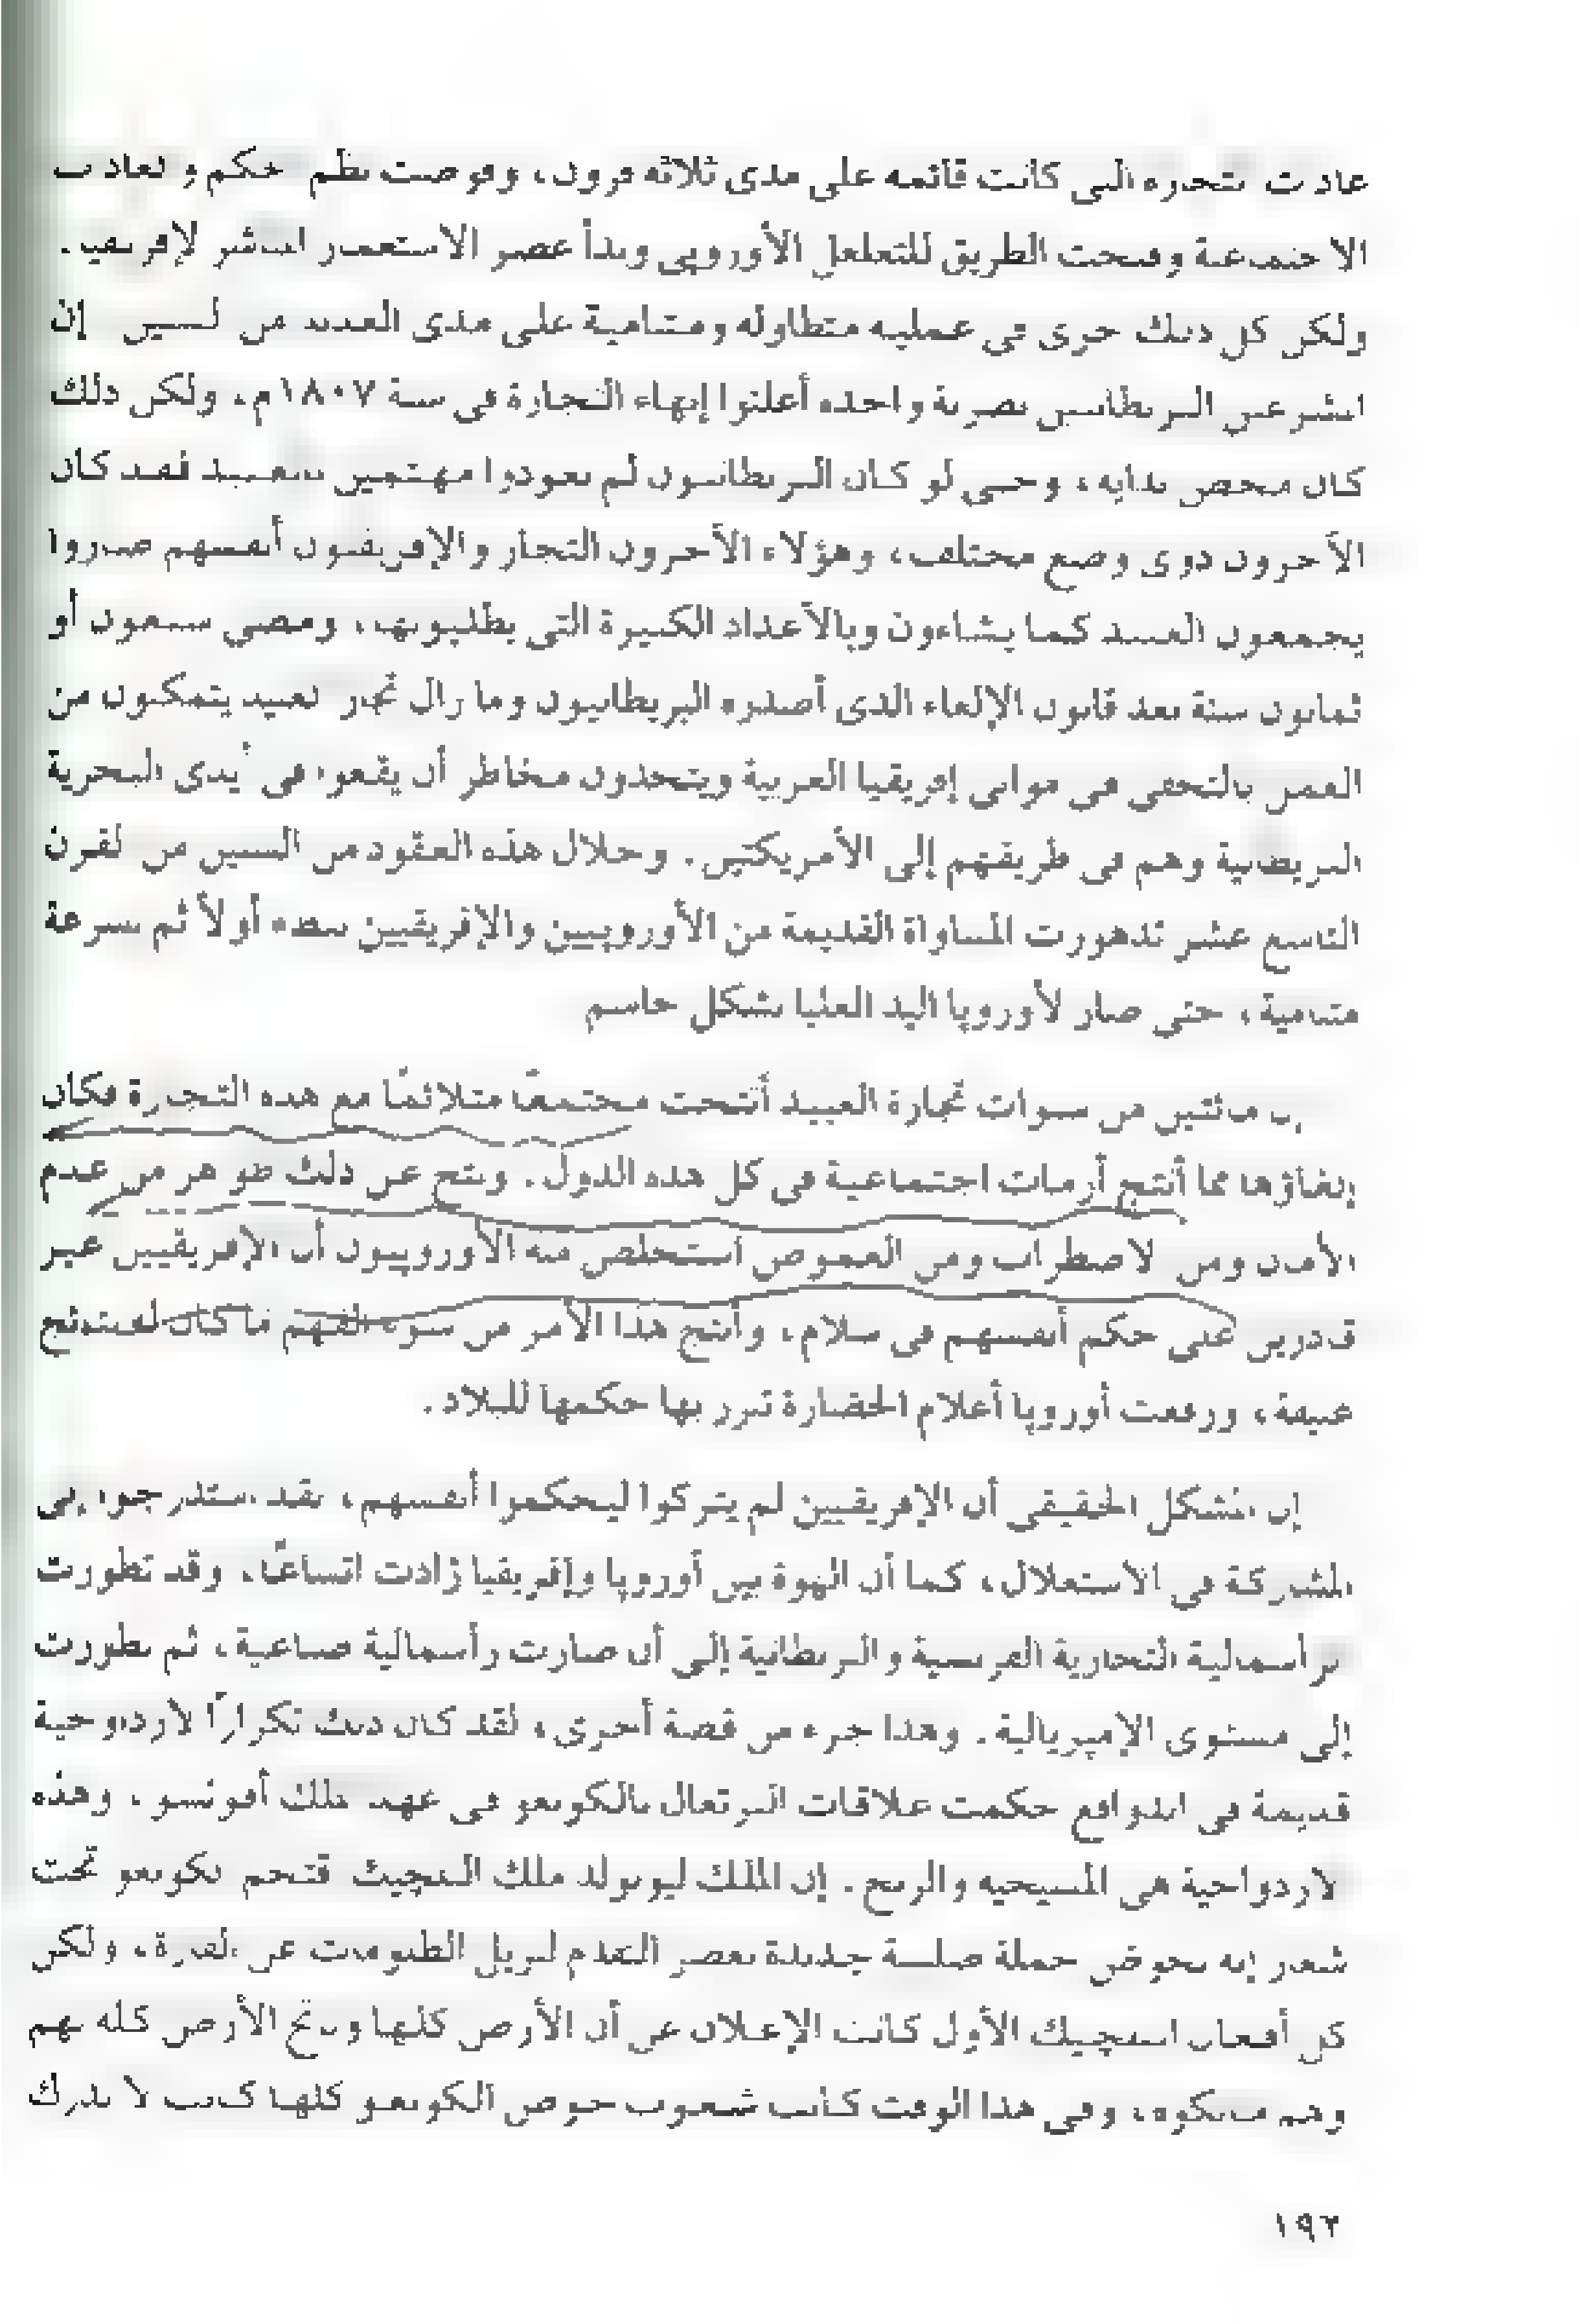 عادات التجارة التى كانت قائمة على مدى ثلاثة قرون، وقوضت نظم الحكم والعادات
الاجتماعية وفتحت الطريق للتغلغل الأوروپى وبدأ عصر الاستعمار المباشر لإفريقيا.
ولكن كل ذلك جرى فى عملية متطاولة ومتنامية على مدى العديد من السنين إن
المشرعين البريطانيين بضربة واحدة أعلنوا إنهاء التجارة فى سنة ١٨٠٧م، ولكن ذلك
كان محض بداية، وحتى لو كان البريطانيون لم يعودوا مهتمين بالعبيد فقد كان
الآخرون ذوى وضع مختلف، وهؤلاء الآخرون التجار والإفريقيون أنفسهم صدروا
يجمعون العبيد كما يشاءون وبالأعداد الكبيرة التى يطلبونها، ومضى سبعون أو
ثمانون سنة بعد قانون الإلغاء الذى أصدره البريطانيون وما زال تجار العبيد يتمكنون من
العمل بالتخفى فى موانى إفريقيا الغربية ويتحدون مخاطر أن يقعوا فى أيدى البحرية
البريطانية وهم فى طريقهم إلى الأمريكتين. وخلال هذه العقود من السنين من القرن
التاسع عشر تدهورت المساواة القديمة من الأوروپيين والإفريقيين ببطء أولاً ثم بسرعة
متنامية، حتى صار لأوروپا اليد العليا بشكل حاسم
إن مائتين من سنوات تجارة العبيد أنتجت مجتمعًا متلائمًا مع هذه التجارة فكان
إلغاؤها مما أنتج أزمات اجتماعية فى كل هذه الدول. ونتج عن ذلك ظواهر من عدم
الأمان ومن الاضطراب ومن الغموض استخلص منه الأوروپيون أن الإفريقيين غير
قادرين على حكم أنفسهم فى سلام، وأنتج هذا الأمر من سوء الفهم ما كان له نتائج
عنيفة، ورفعت أوروپا أعلام الحضارة تبرر بها حكمها للبلاد.
إن المشكل الحقيقى أن الإفريقيين لم يتركوا ليحكموا أنفسهم، لقد استدرجوا إلى
المشاركة فى الاستغلال، كما أن الهوة بين أوروپا وإفريقيا زادت اتساعًا، وقد تطورت
الرأسمالية التجارية الفرنسية والبريطانية إلى أن صارت رأسمالية صناعية، ثم تطورت
إلى مستوى الإمپريالية. وهذا جزء من قصة أخرى، لقد كان ذلك تكرارًا لازدواجية
قديمة فى الدوافع حكمت علاقات البرتغال بالكونغو فى عهد الملك أفونسو، وهذه
الازدواجية هى المسيحية والربح. إن الملك ليوبولد ملك البلچيك اقتحم الكونغو تحت
شعار إنه يخوض حملة صليبة جديدة بعصر التقدم ليزيل الظلومات عن القارة، ولكن
كل أفعال البلچيك الأول كانت الإعلان عن أن الأرض كلها ونتاج الأرض كله لهم
وهم مالكوه، وفى هذا الوقت كانت شعوب حوض الكونغو كلها كانت لا تدرك
١٩٢